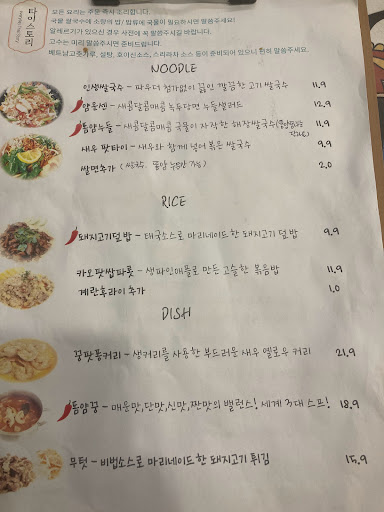 타이스토리
모든 요리는 주문 즉시 조리합니다.
국물 쌀국수에 소량의 밥/밥류에 국물이 필요하시면 말씀주세요!
알레르기가 있으신 경우 사전에 꼭 말씀주시길 바랍니다.
고수는 미리 말씀주시면 준비드립니다.
베트남고춧가루, 설탕, 호이신소스, 스리라차 소스 등이 준비되어 있으니 편히 말씀주세요.
NOODLE
인생쌀국수 - 파우더 첨가없이 끓인 깔끔한 고기쌀국수 11.9
얌운센 - 새콤달콤매콤 녹두당면 누들샐러드 12.9
똠얌누들 - 새콤달콤매콤 국물이 자작한 해장쌀국수
11.9
새우 팟타이 - 새우와 함께 넣어 볶은 쌀국수 9.9
쌀면추가 (쌀국수, 똠얌 누들만 가능) 2.0
RICE
돼지고기덮밥 - 태국소스로 마리네이드한 돼지고기 덮밥 9.9
카오팟쌉빠롯 - 생파인애플로 만든 고슬한 볶음밥 11.9
계란후라이 추가 1.0
DISH
꿍팟퐁커리 - 생커리를 사용한 부드러운 새우 옐로우 커리 21.9
똠얌꿍 - 매운맛,단맛,신맛,짠맛의 밸런스! 세계 3대 스프! 18.9
무텃 - 비법소스로 마리네이드한 돼지고기 튀김 15.9